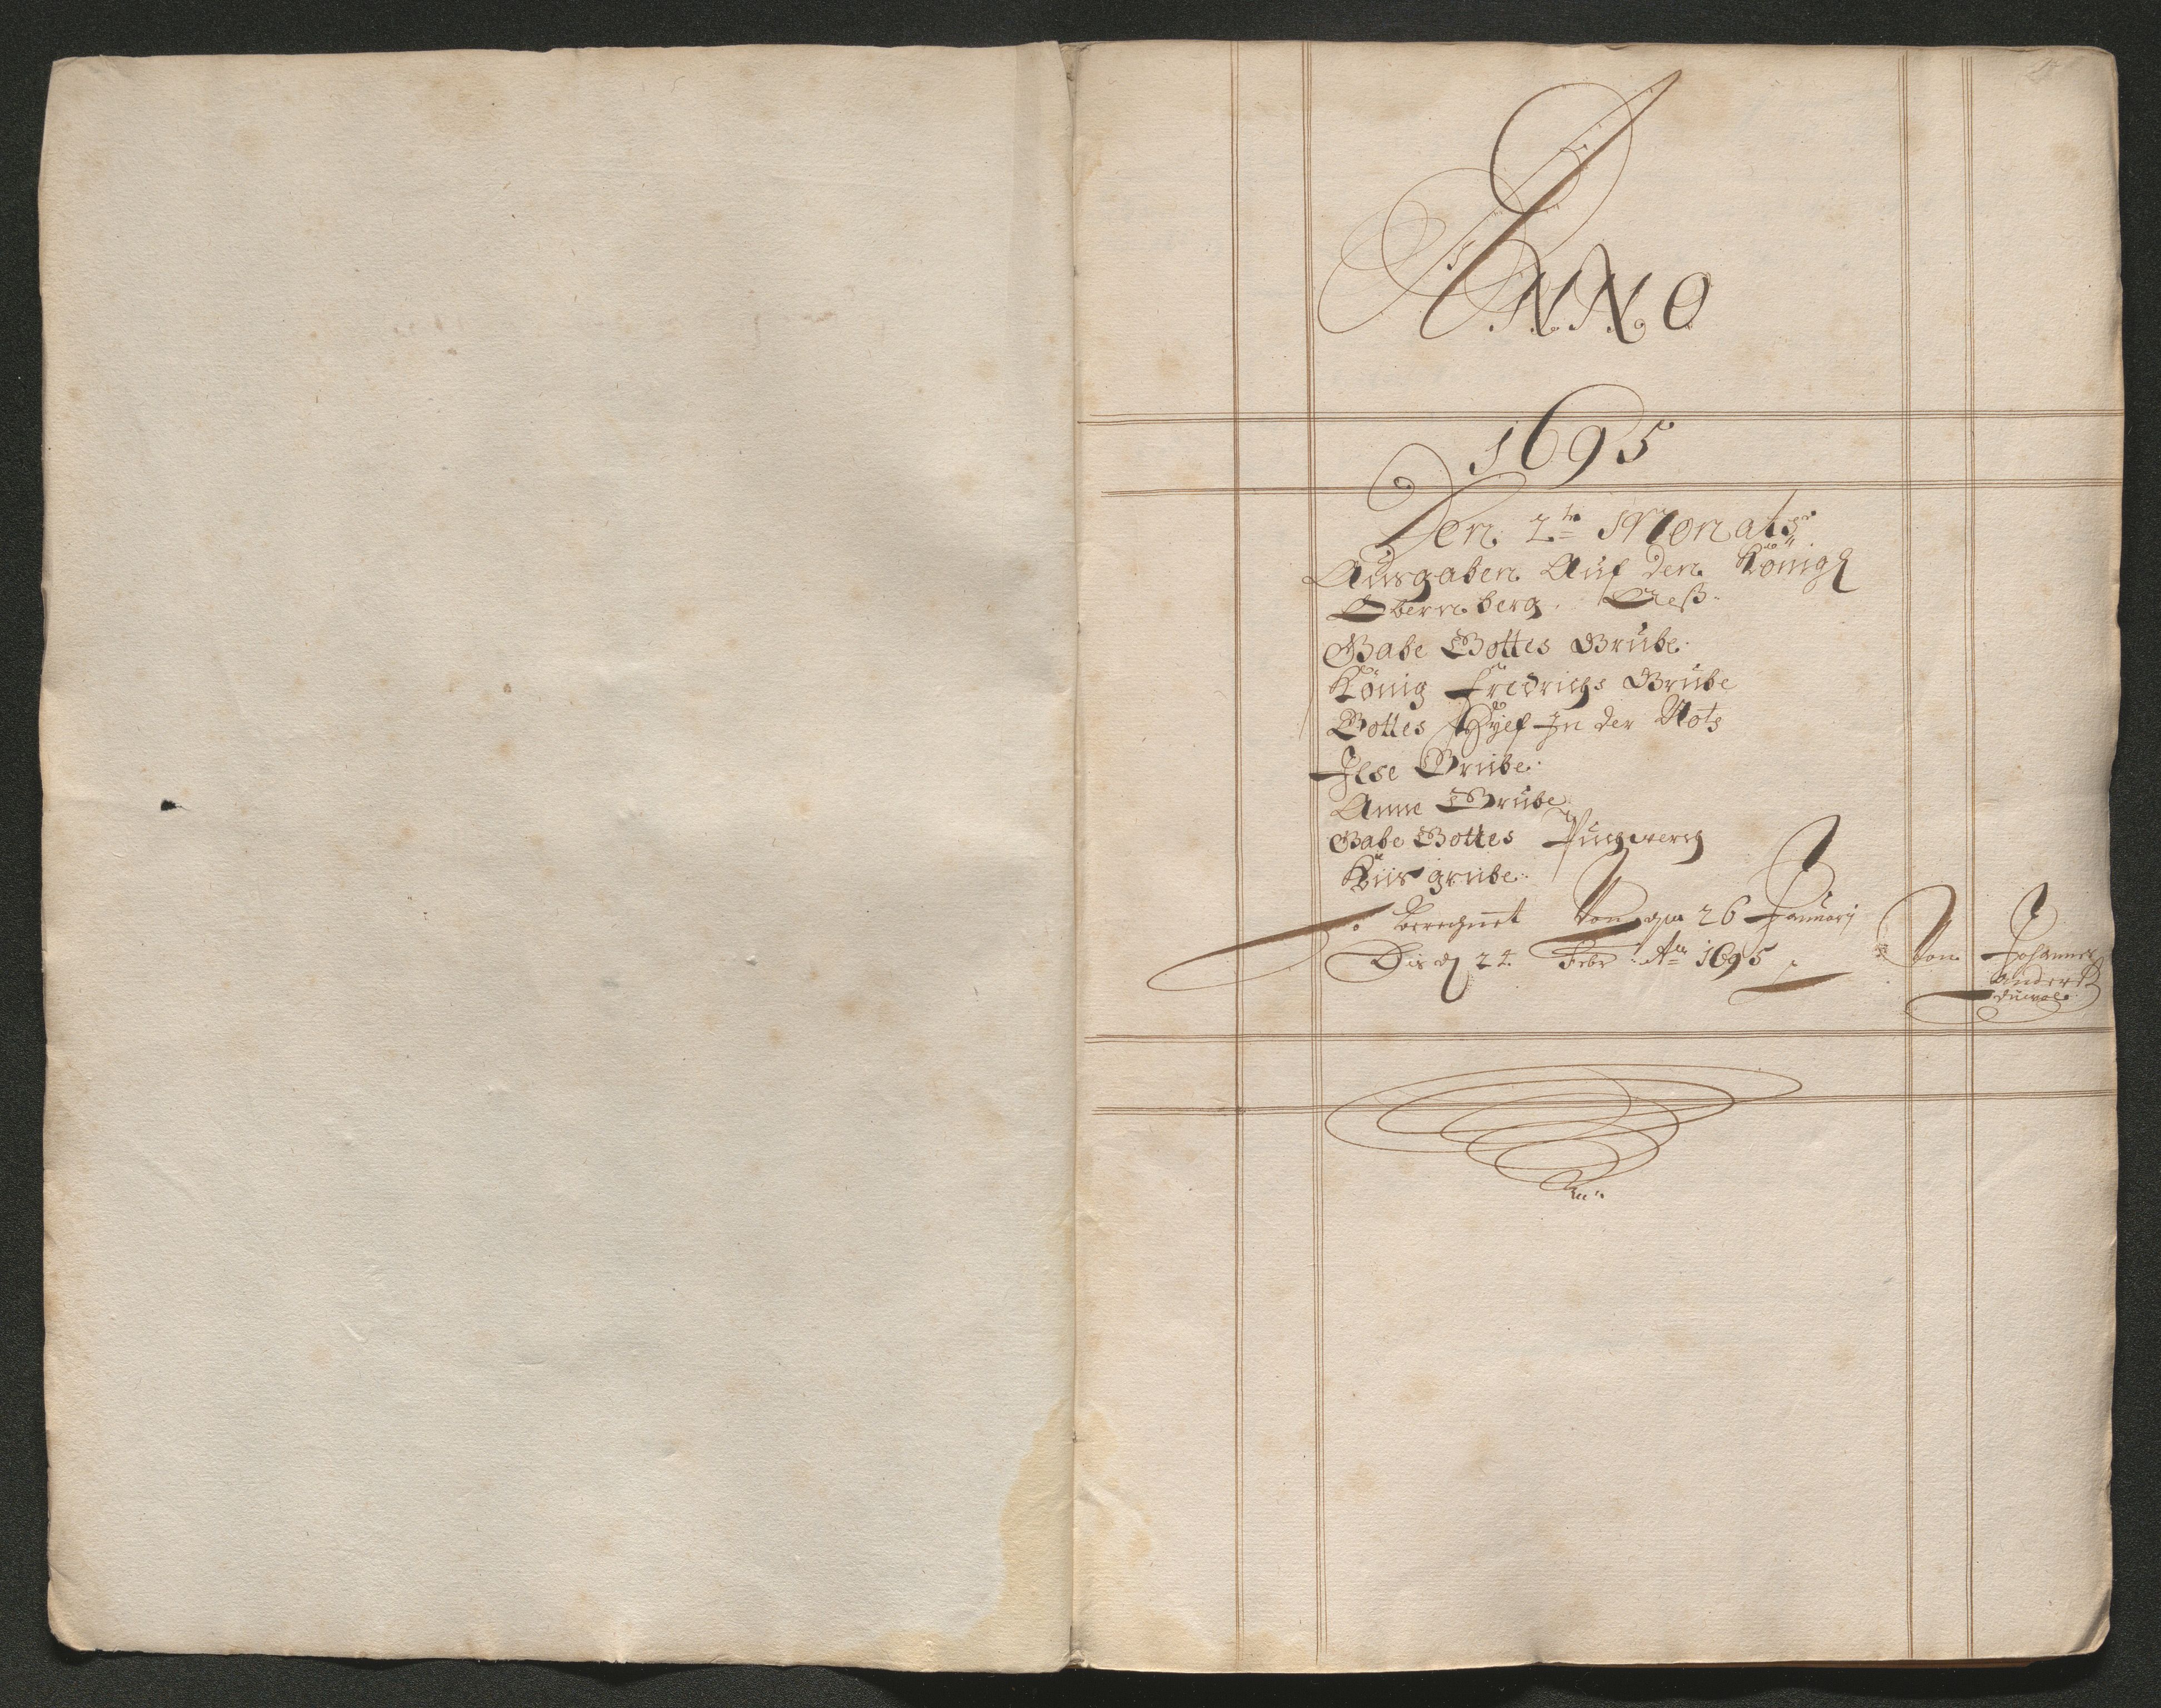 ANNO
1695
Den 2te Monats
Ausgaben Auf den Königl
Obernberg.
Gabe Gottes Grube.
König Fredrichs Grube
Gottes Hülf In der Noth
Ilse Grube.
Anne Grube
Gabe Gottes Puchwerch
Küis grube.
berechnet Von 26 Januarj
Bis d 24 Febr: Ao 1695
Von Johannes
Anders